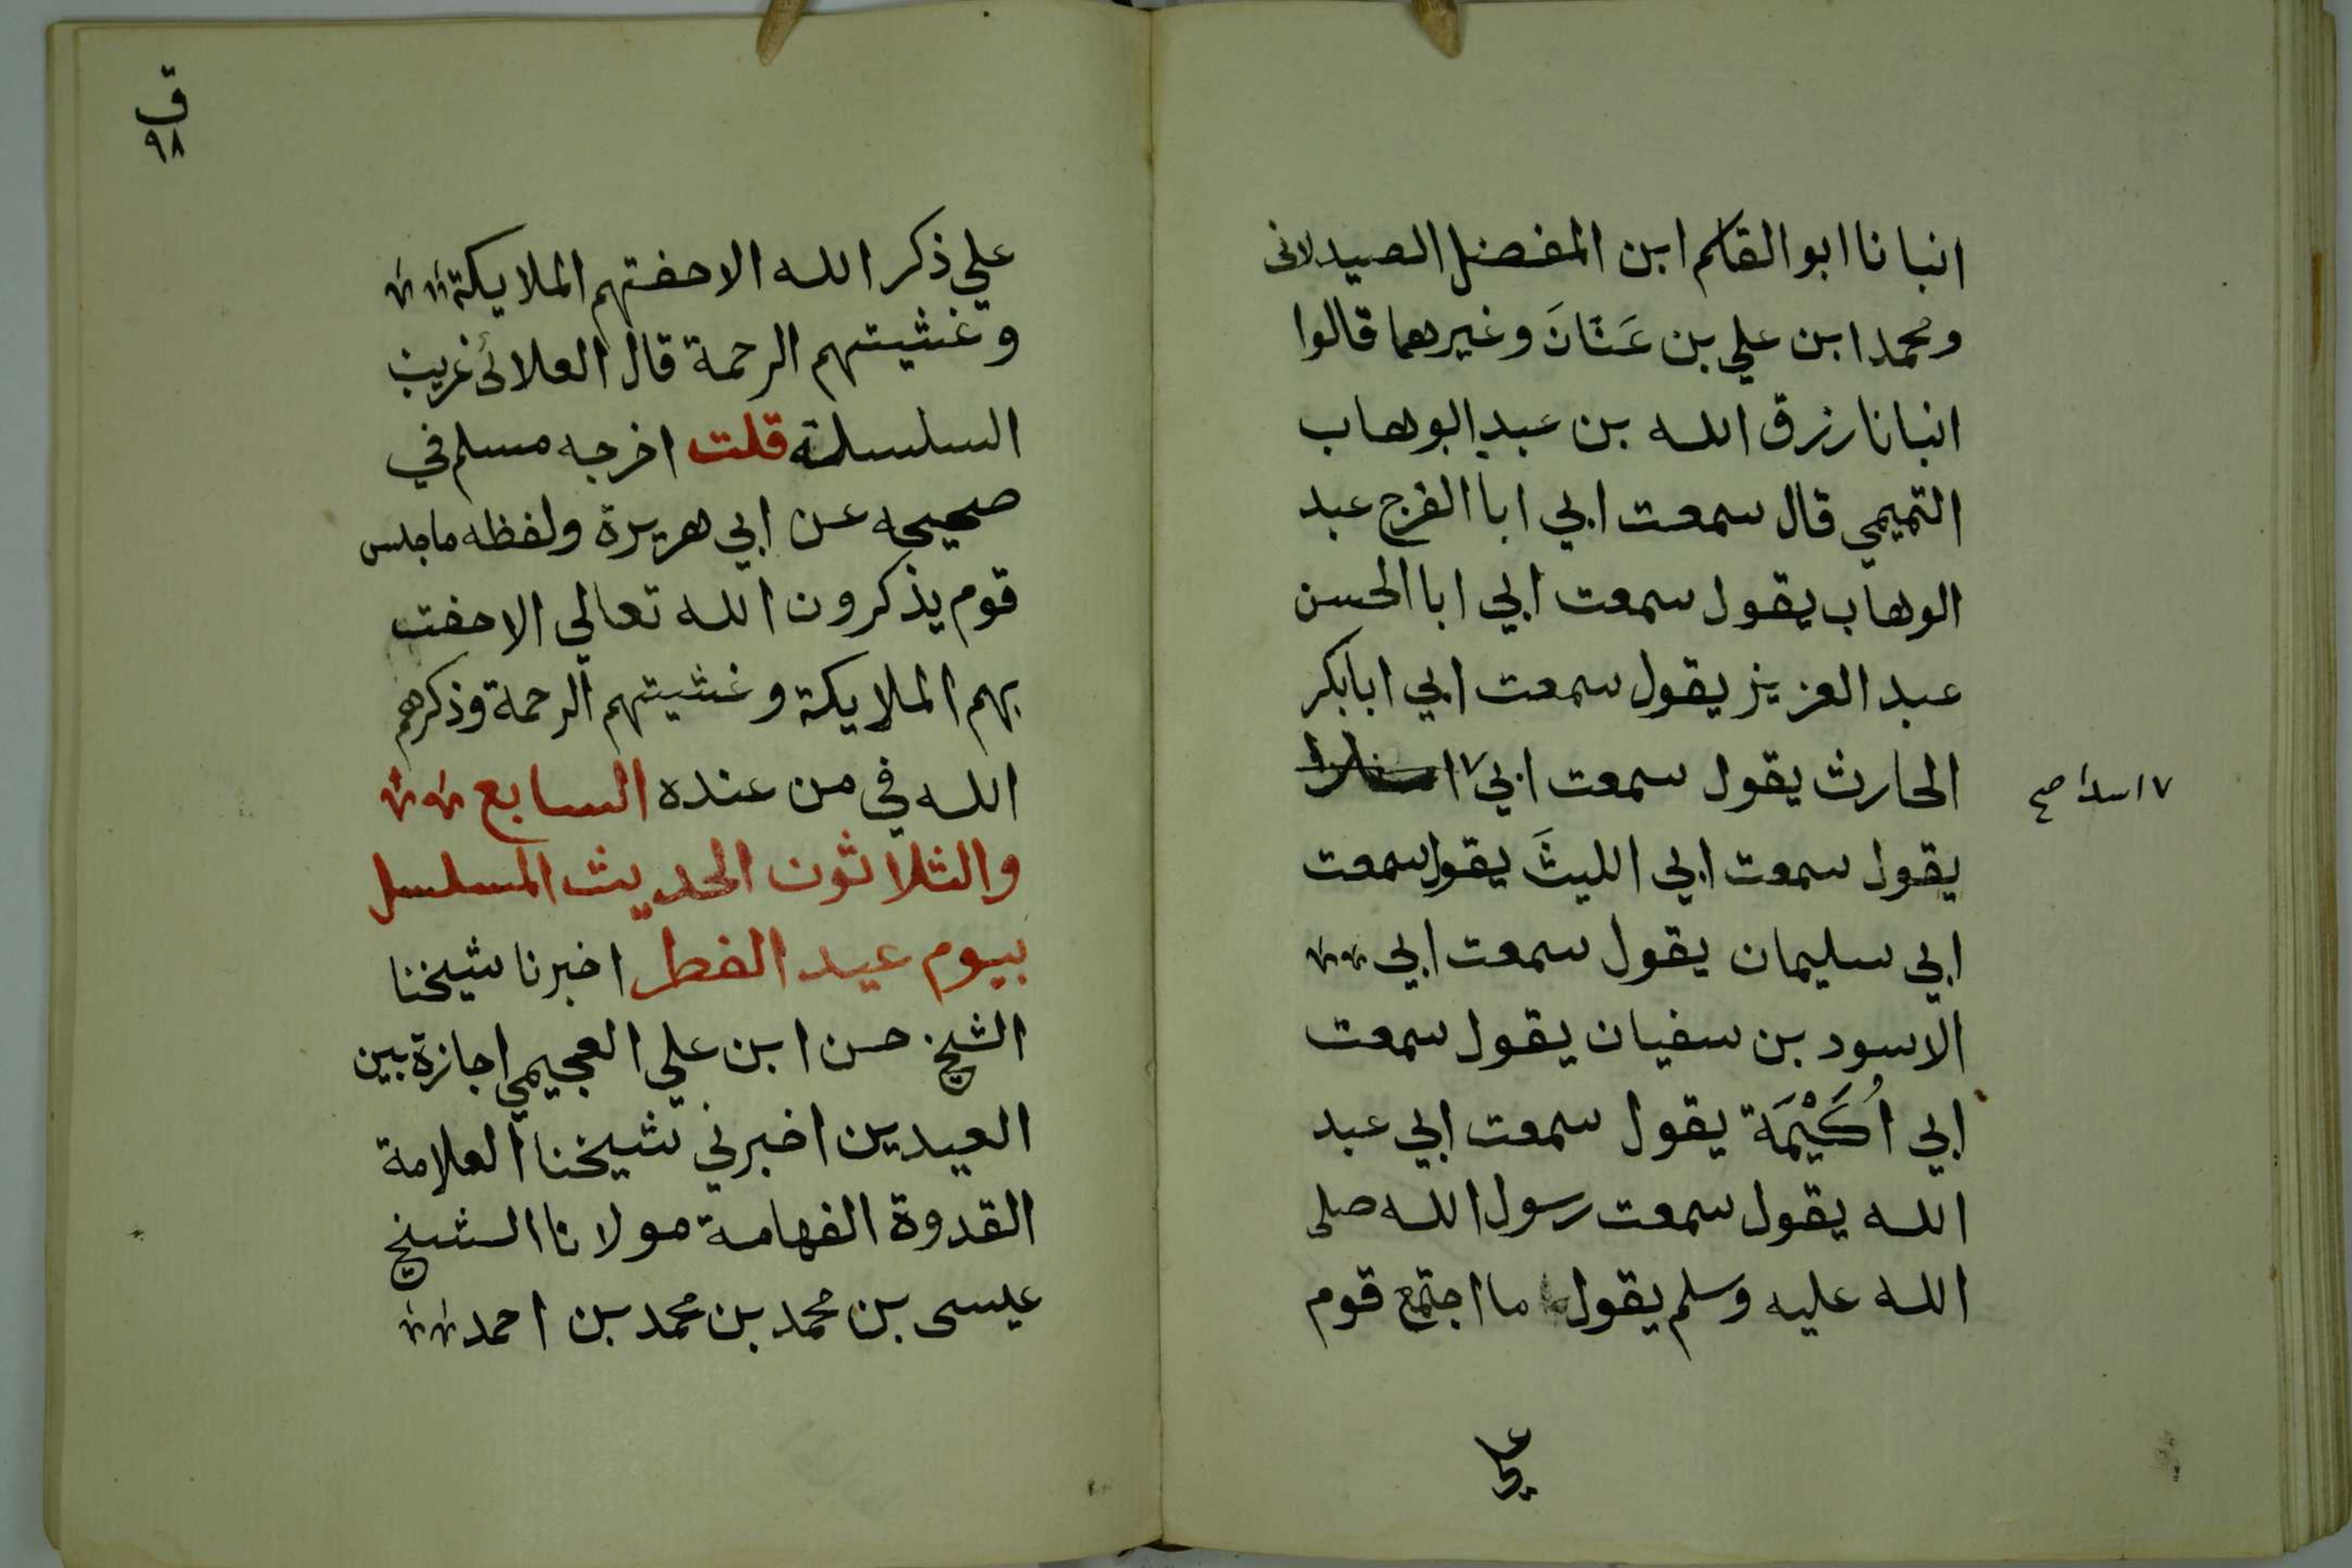 انبانا ابو القاسم ابن المفضل الصيدلانى
ومحمد ابن علي بن عَنَانَ وغيرهما قالوا
انبانا رزق الله بن عبد الوهاب
التميمي قال سمعت ابي ابا الفرج عبد
الوهاب يقول سمعت ابي ابا الحسن
عبد العزيز يقول سمعت ابي ابا بكر
الحارث يقول سمعت ابي ٧
٧ اسدا صح
يقول سمعت ابي الليثَ يقول سمعت
ابي سليمان يقول سمعت ابي
الاسود بن سفيان يقول سمعت
ابي اُكَيْمَة يقول سمعت ابي عبد
الله يقول سمعت رسول الله صلى
الله عليه وسلم يقول ما اجتمع قوم
علي
ق
٩٨
علي ذكر الله الاحفتهم الملايكة
وغشيتهم الرحمة قال العلائى غريب
السلسلة قلت اخرجه مسلم في
صحيحه عن ابي هريرة ولفظه ما جلس
قوم يذكرون الله تعالي الاحفت
بهم الملايكة وغشيتهم الرحمة وذكرهم
الله في من عنده السابع
والثلاثون الحديث المسلسل
بيوم عيد الفطر اخبرنا شيخنا
الشيخ حسن ابن علي العجيمي اجازة بين
العيدين اخبرني شيخنا العلامة
القدوة الفهامة مولانا الشيخ
عيسى بن محمد بن محمد بن احمد